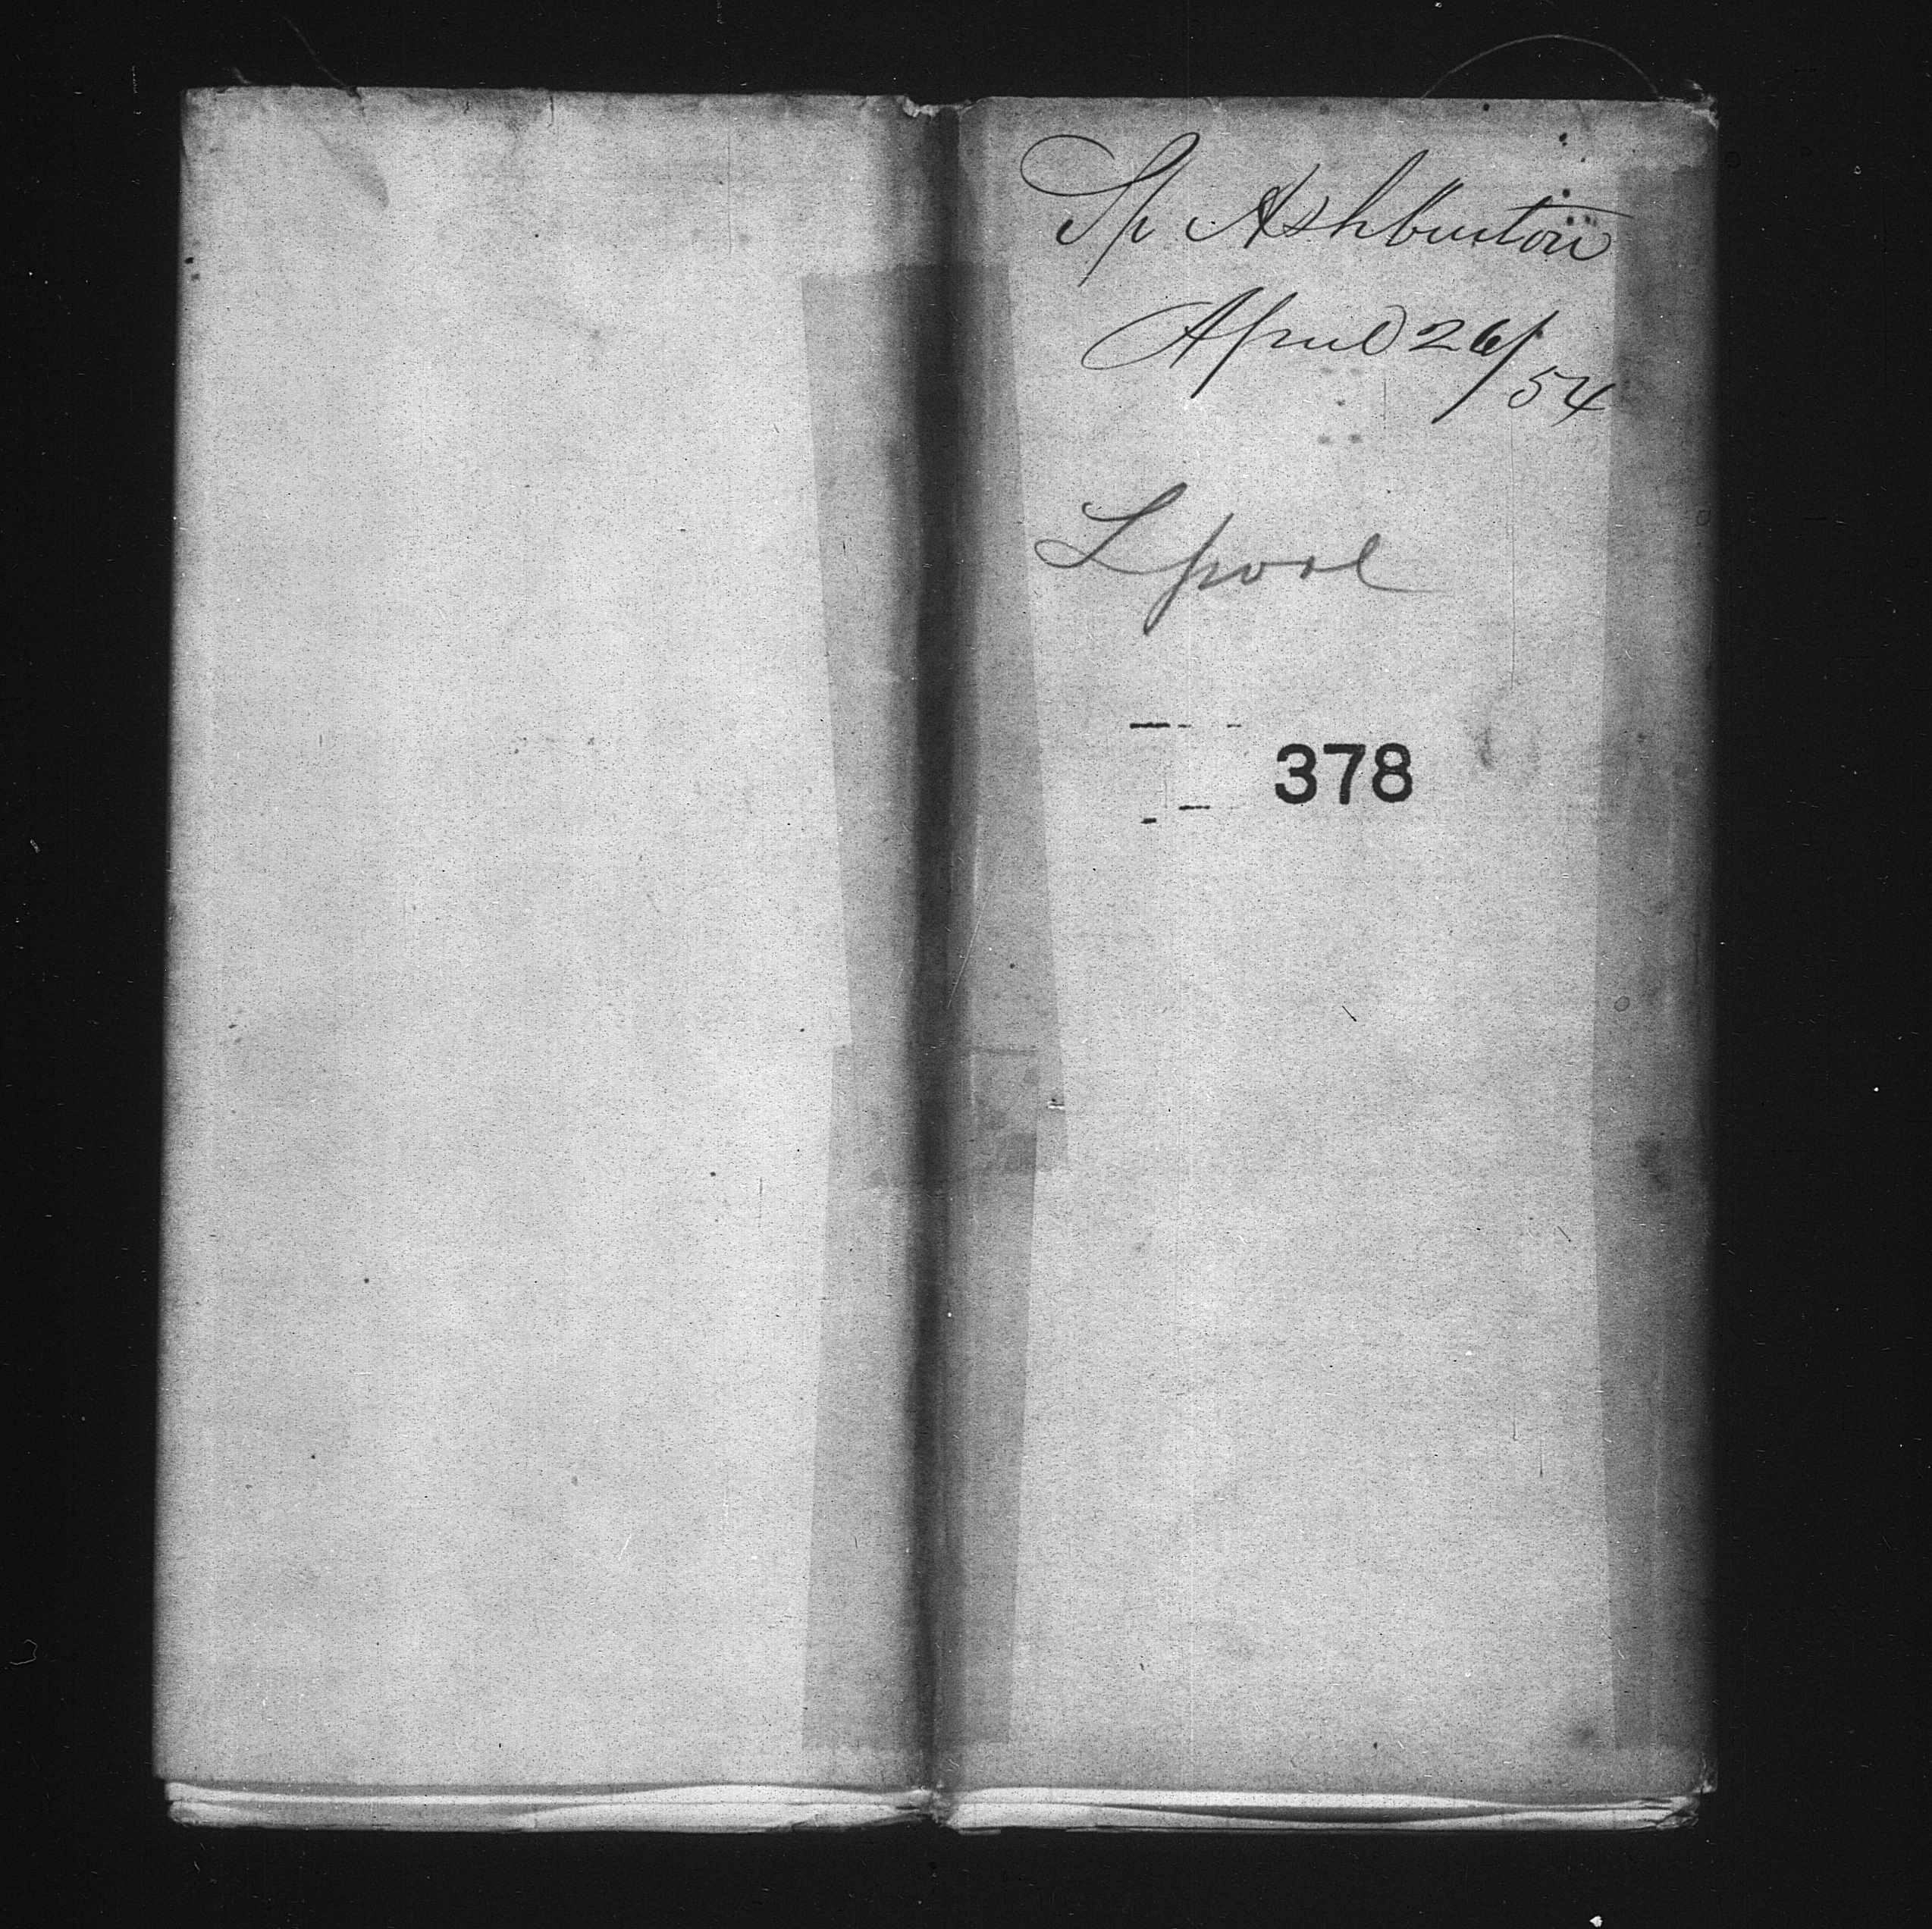 Sp Ashburton
April 26/54
Lpool
378